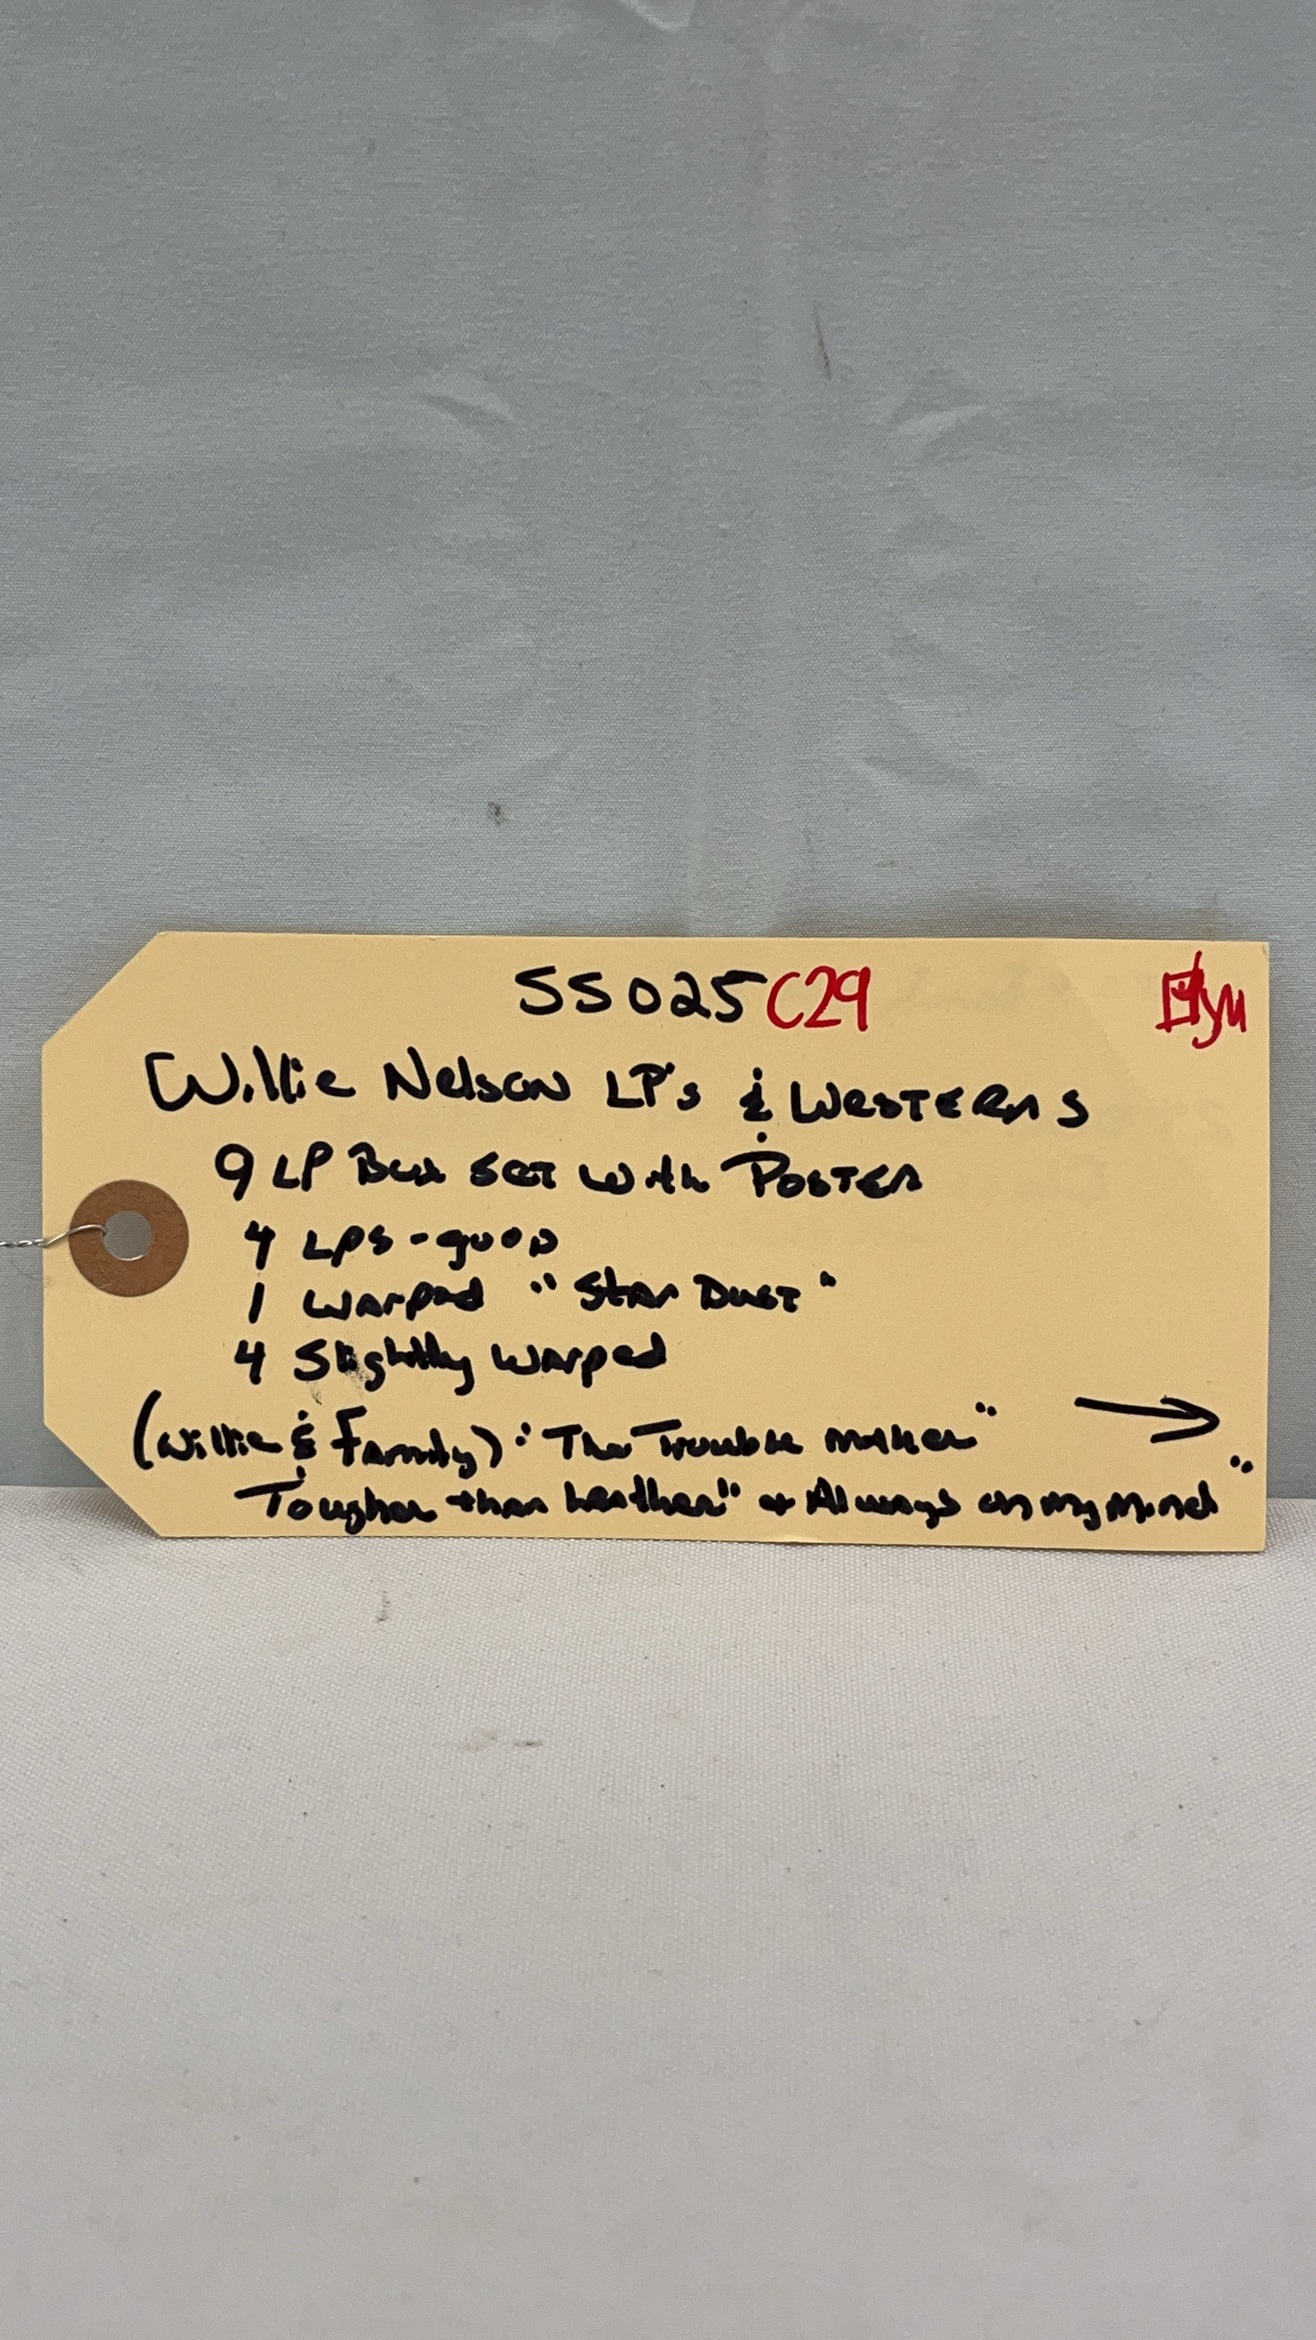 SS025C29
Willie Nelson LP's & Westerns
9 LP Box Set with Poster
4 LPs - good
1 Warped "Star Dust"
4 Slightly Warped
(Willie & Family): "The Trouble maker"
Tougher than Leather" + Always on my Mind"